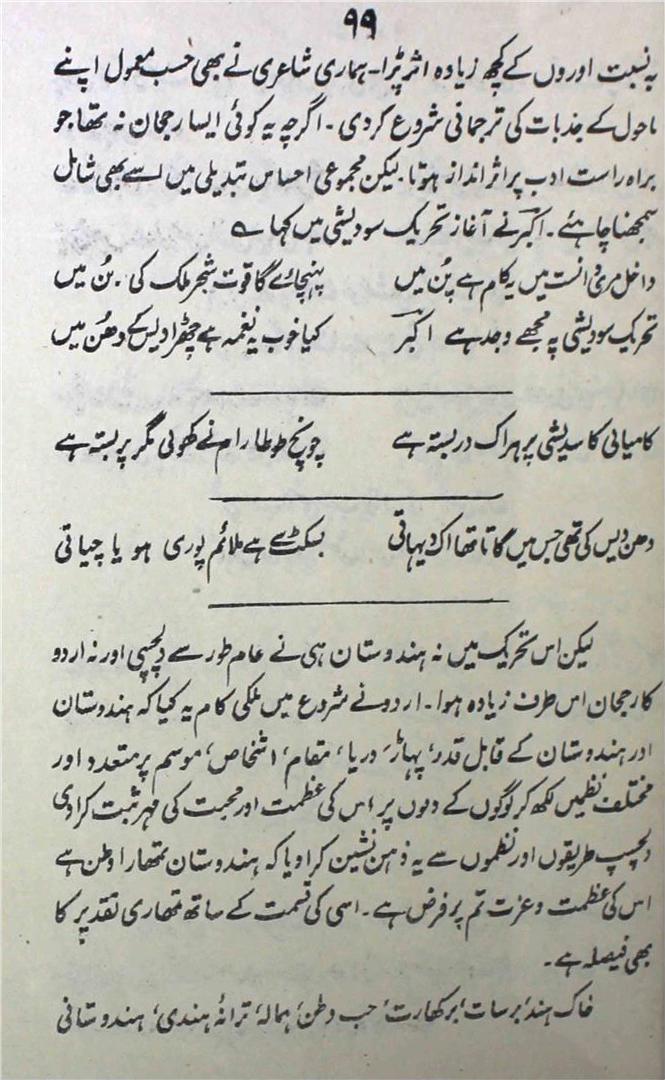 ۹۹
پہ نسبت اوروں کے کچھ زیادہ اثر پڑا۔ ہماری شاعری نے بھی حسب معمول اپنے
ماحول کے جذبات کی ترجمانی شروع کر دی۔ اگرچہ یہ کوئی ایسا رجحان نہ تھا جو
براہ راست ادب پر اثر انداز ہوتا۔ لیکن مجموعی احساس تبدیلی میں اسے بھی شامل
سمجھنا چاہئے۔ اکبر نے آغاز تحریک سودیشی میں کہا ہے
داخل مری دانست میں یہ کام ہے پُن میں پہنچائے گا قوت شجر ملک کی بُن میں
تحریک سودیشی پہ مجھے وجد ہے اکبر کیا خوب یہ نغمہ ہے چھڑا دیس کے دھُن میں
کامیابی کا سدیشی پر ہر اک در بستہ ہے چونچ طوطا رام نے کھولی مگر پر بستہ ہے
دھن دیس کی تھی جس میں گاتا تھا اک دیہاتی بسکٹ سے ہے ملائم پوری ہو یا چپاتی
لیکن اس تحریک میں نہ ہندوستان ہی نے عام طور سے دلچسپی اور نہ اردو
کا رجحان اس طرف زیادہ ہوا۔ اردو نے شروع میں ملکی کام یہ کیا کہ ہندوستان
اور ہندوستان کے قابل قدر، پہاڑ، دریا، مقام، اشخاص، موسم پر متعدد اور
مختلف نظمیں لکھ کر لوگوں کے دلوں پر اس کی عظمت اور محبت کی مہر ثبت کرا دی
دلچسپ طریقوں اور نظموں سے یہ ذہن نشین کرا دیا کہ ہندوستان تمھارا وطن ہے
اس کی عظمت و عزت تم پر فرض ہے۔ اسی کی قسمت کے ساتھ تمھاری تقدیر کا
بھی فیصلہ ہے۔
خاک ہند، برسات، برکھارت، حب وطن، ہمالہ، ترانۂ ہندی، ہندوستانی